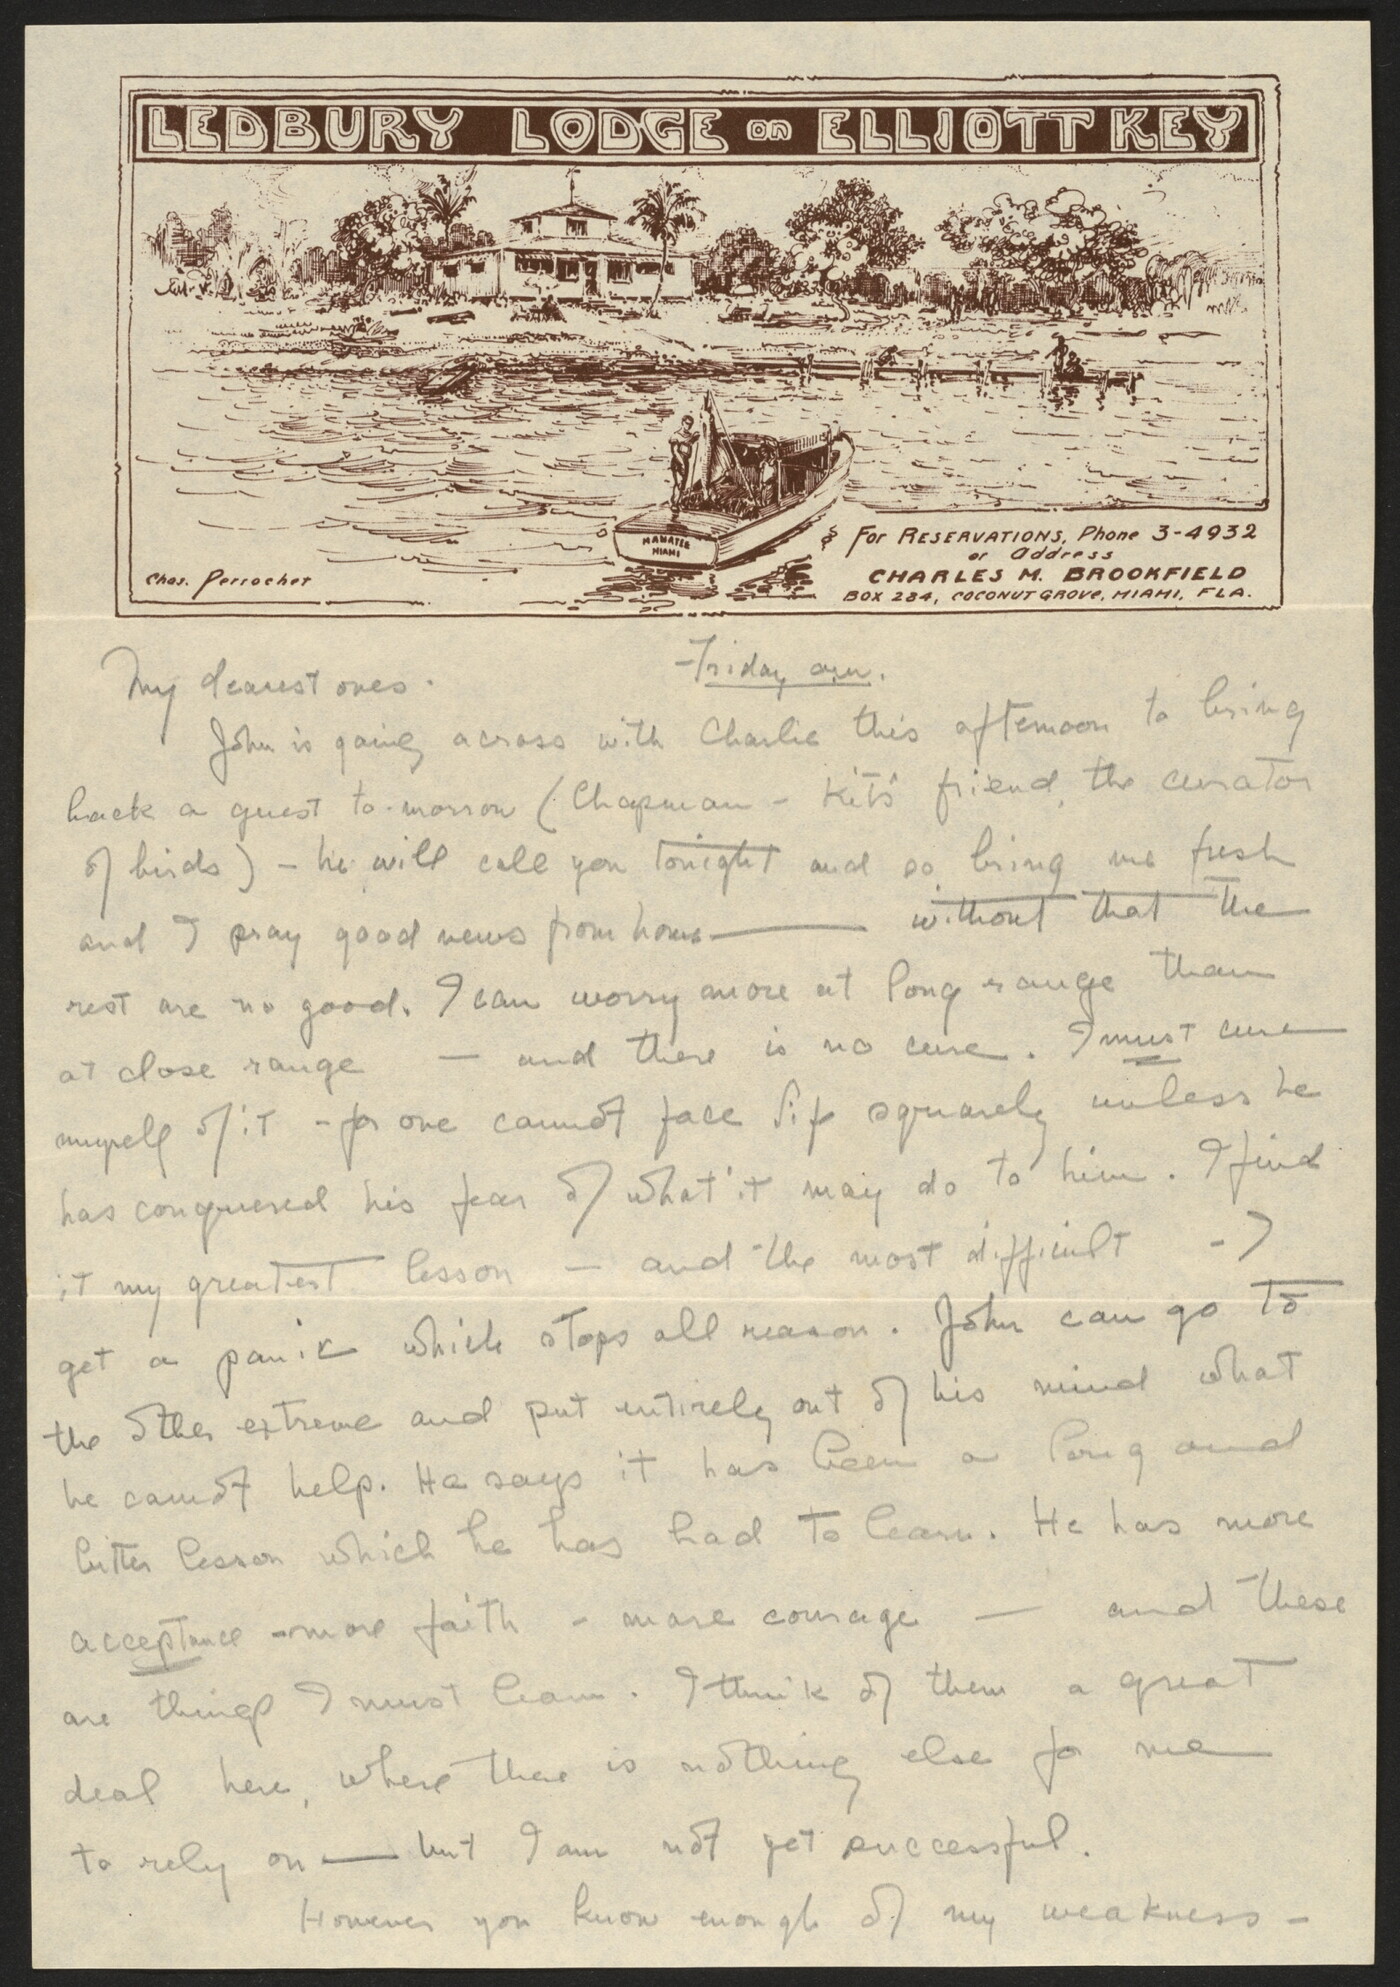 LEDBURY LODGE on ELLIOTT KEY
MANATEE
MIAMI
For RESERVATIONS, Phone 3-4932
or Address
CHARLES M. BROOKFIELD
BOX 284, COCONUT GROVE, MIAMI, FLA.
Chas. Perrochet
Friday am.
My dearest ones.
John is going across with Charlie this afternoon to bring
back a guest to-morrow (Chapman - Kit's friend, the curator
of birds) - he will call you tonight and so bring me fresh
and I pray good news from home — without that the
rest are no good. I can worry more at long range than
at close range — and there is no cure. I must cure
myself of it - for one cannot face life squarely unless he
has conquered his fear of what it may do to him. I find
it my greatest lesson — and the most difficult - I
get a panic which stops all reason. John can go to
the other extreme and put entirely out of his mind what
he cannot help. He says it has been a long and
bitter lesson which he has had to learn. He has more
acceptance - more faith - more courage — and these
are things I must learn. I think of them a great
deal here, where there is nothing else for me
to rely on — but I am not yet successful.
However you know enough of my weakness -